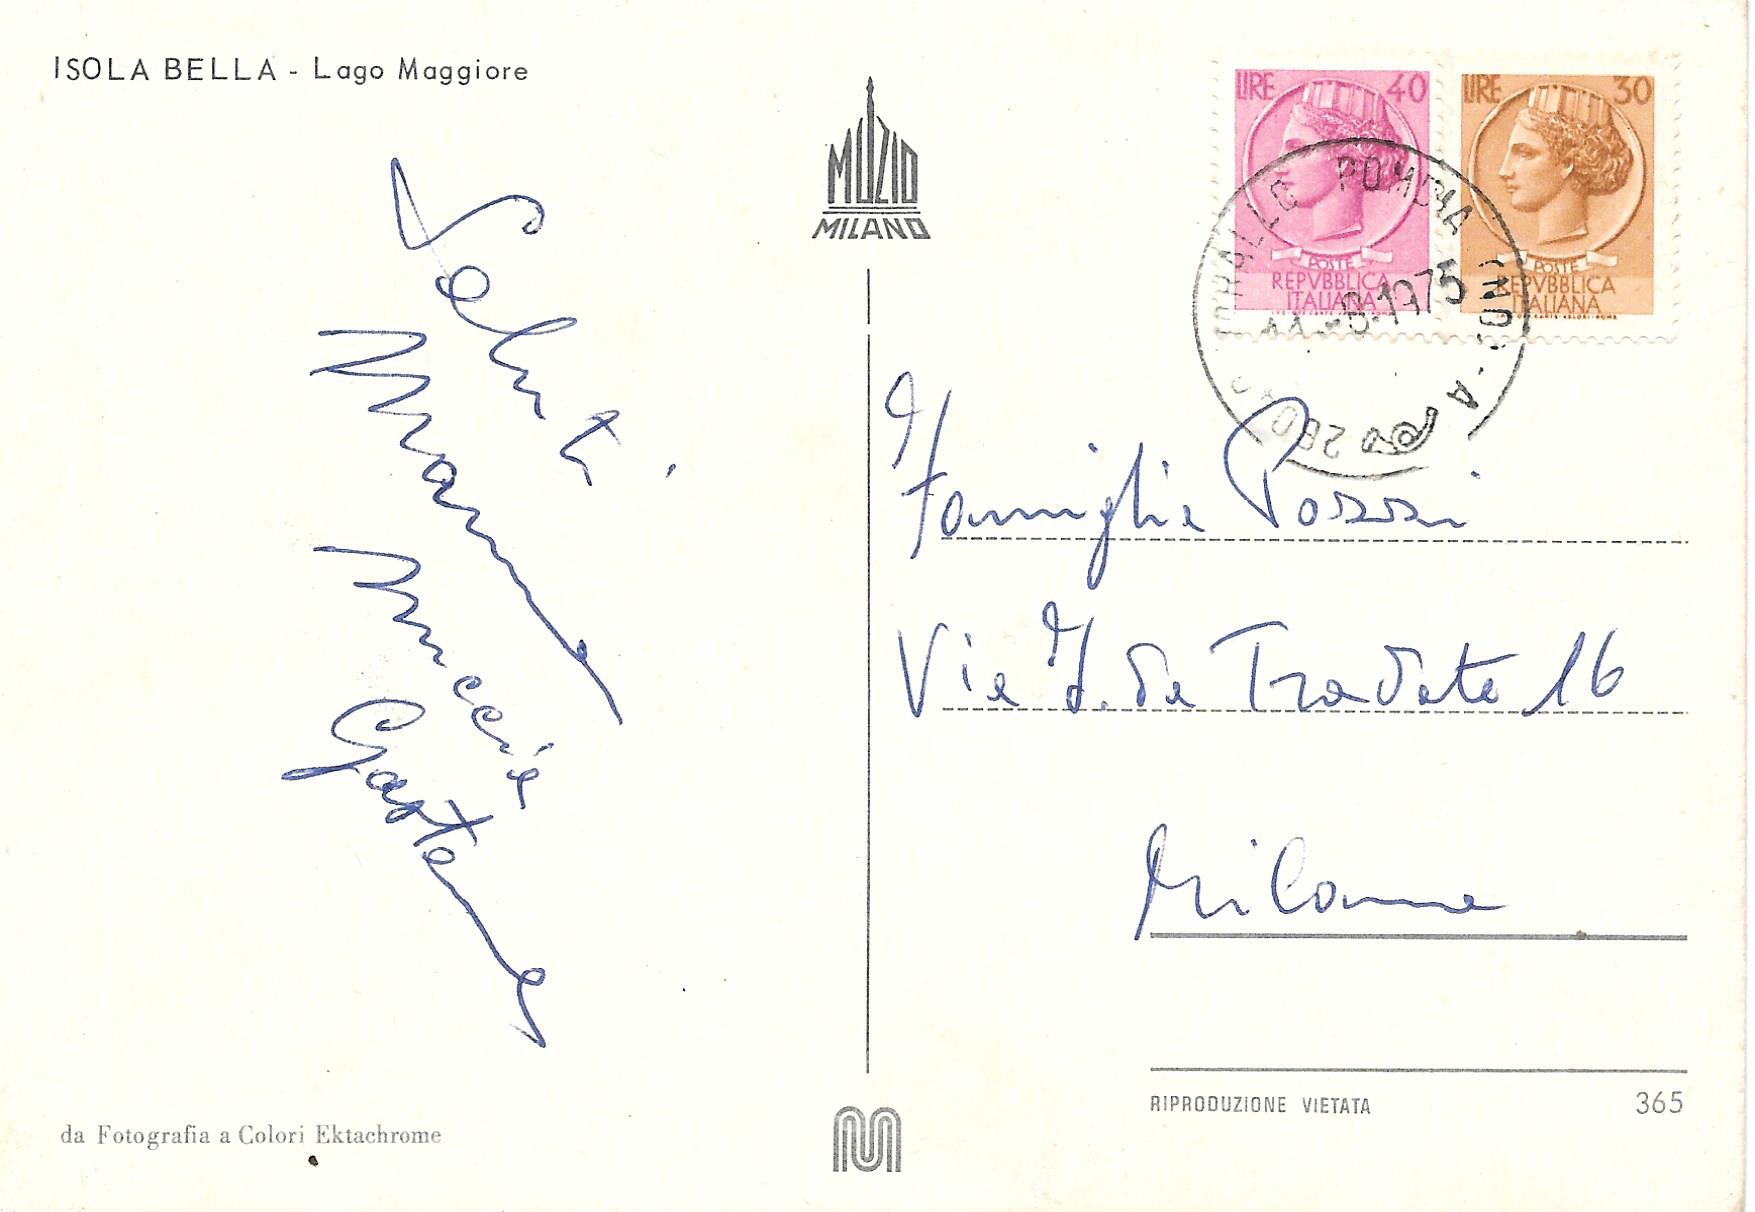 ISOLA BELLA - Lago Maggiore
MUZIO
MILANO
LIRE 40
POSTE
REPVBBLICA
ITALIANA
LIRE 30
POSTE
REPVBBLICA
ITALIANA
POMBIA
-8-1975
28010
Saluti
Nuccia
Gastone
Famiglia Pozzi
Via G. da Tradate 16
Milano
RIPRODUZIONE VIETATA
365
da Fotografia a Colori Ektachrome